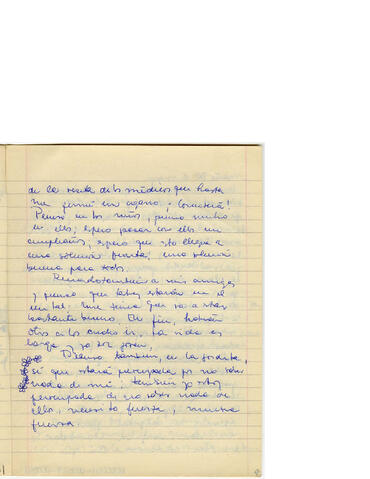 de la visita de los médicos que hasta
me fumé un cigarro. ¡Comenté!
Pienso en los niños, pienso mucho
en ellos; espero pasar con ellos un
cumpleaños; espero que esto llegue a
una solución, una solución
buena para todos.
Recuerdo también a mis amigas
y pienso que estarán en el
recital. Que tenía que va a estar
bastante bueno. En fin, habrán
otros a los cuales ir, la vida es
larga y yo soy joven.
Pienso también, en la gordita,
sé que estará preocupada por no saber
nada de mí; también yo estoy
preocupada de no saber nada de
ella, necesito fuerza, mucha
fuerza.